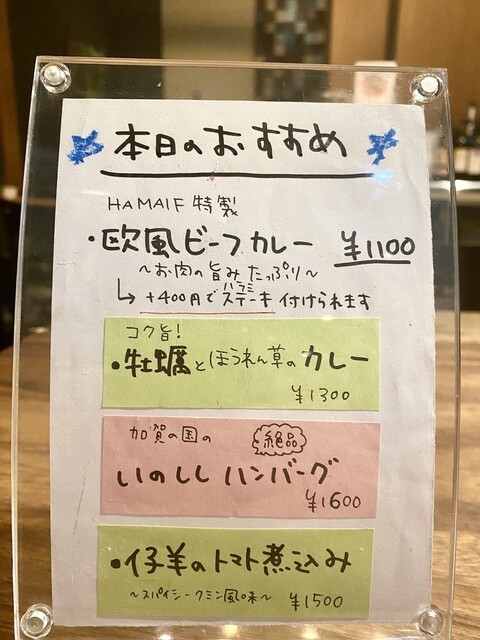 本日のおすすめ
HAMAIF 特製
・欧風ビーフカレー ¥1100
〜お肉の旨みたっぷり〜
ハラミ
↳ +400円でステーキ付けられます
コク旨!
・牡蠣とほうれん草のカレー
¥1300
加賀の国の 絶品
いのししハンバーグ
¥1600
・仔羊のトマト煮込み
〜スパイシークミン風味〜 ¥1500